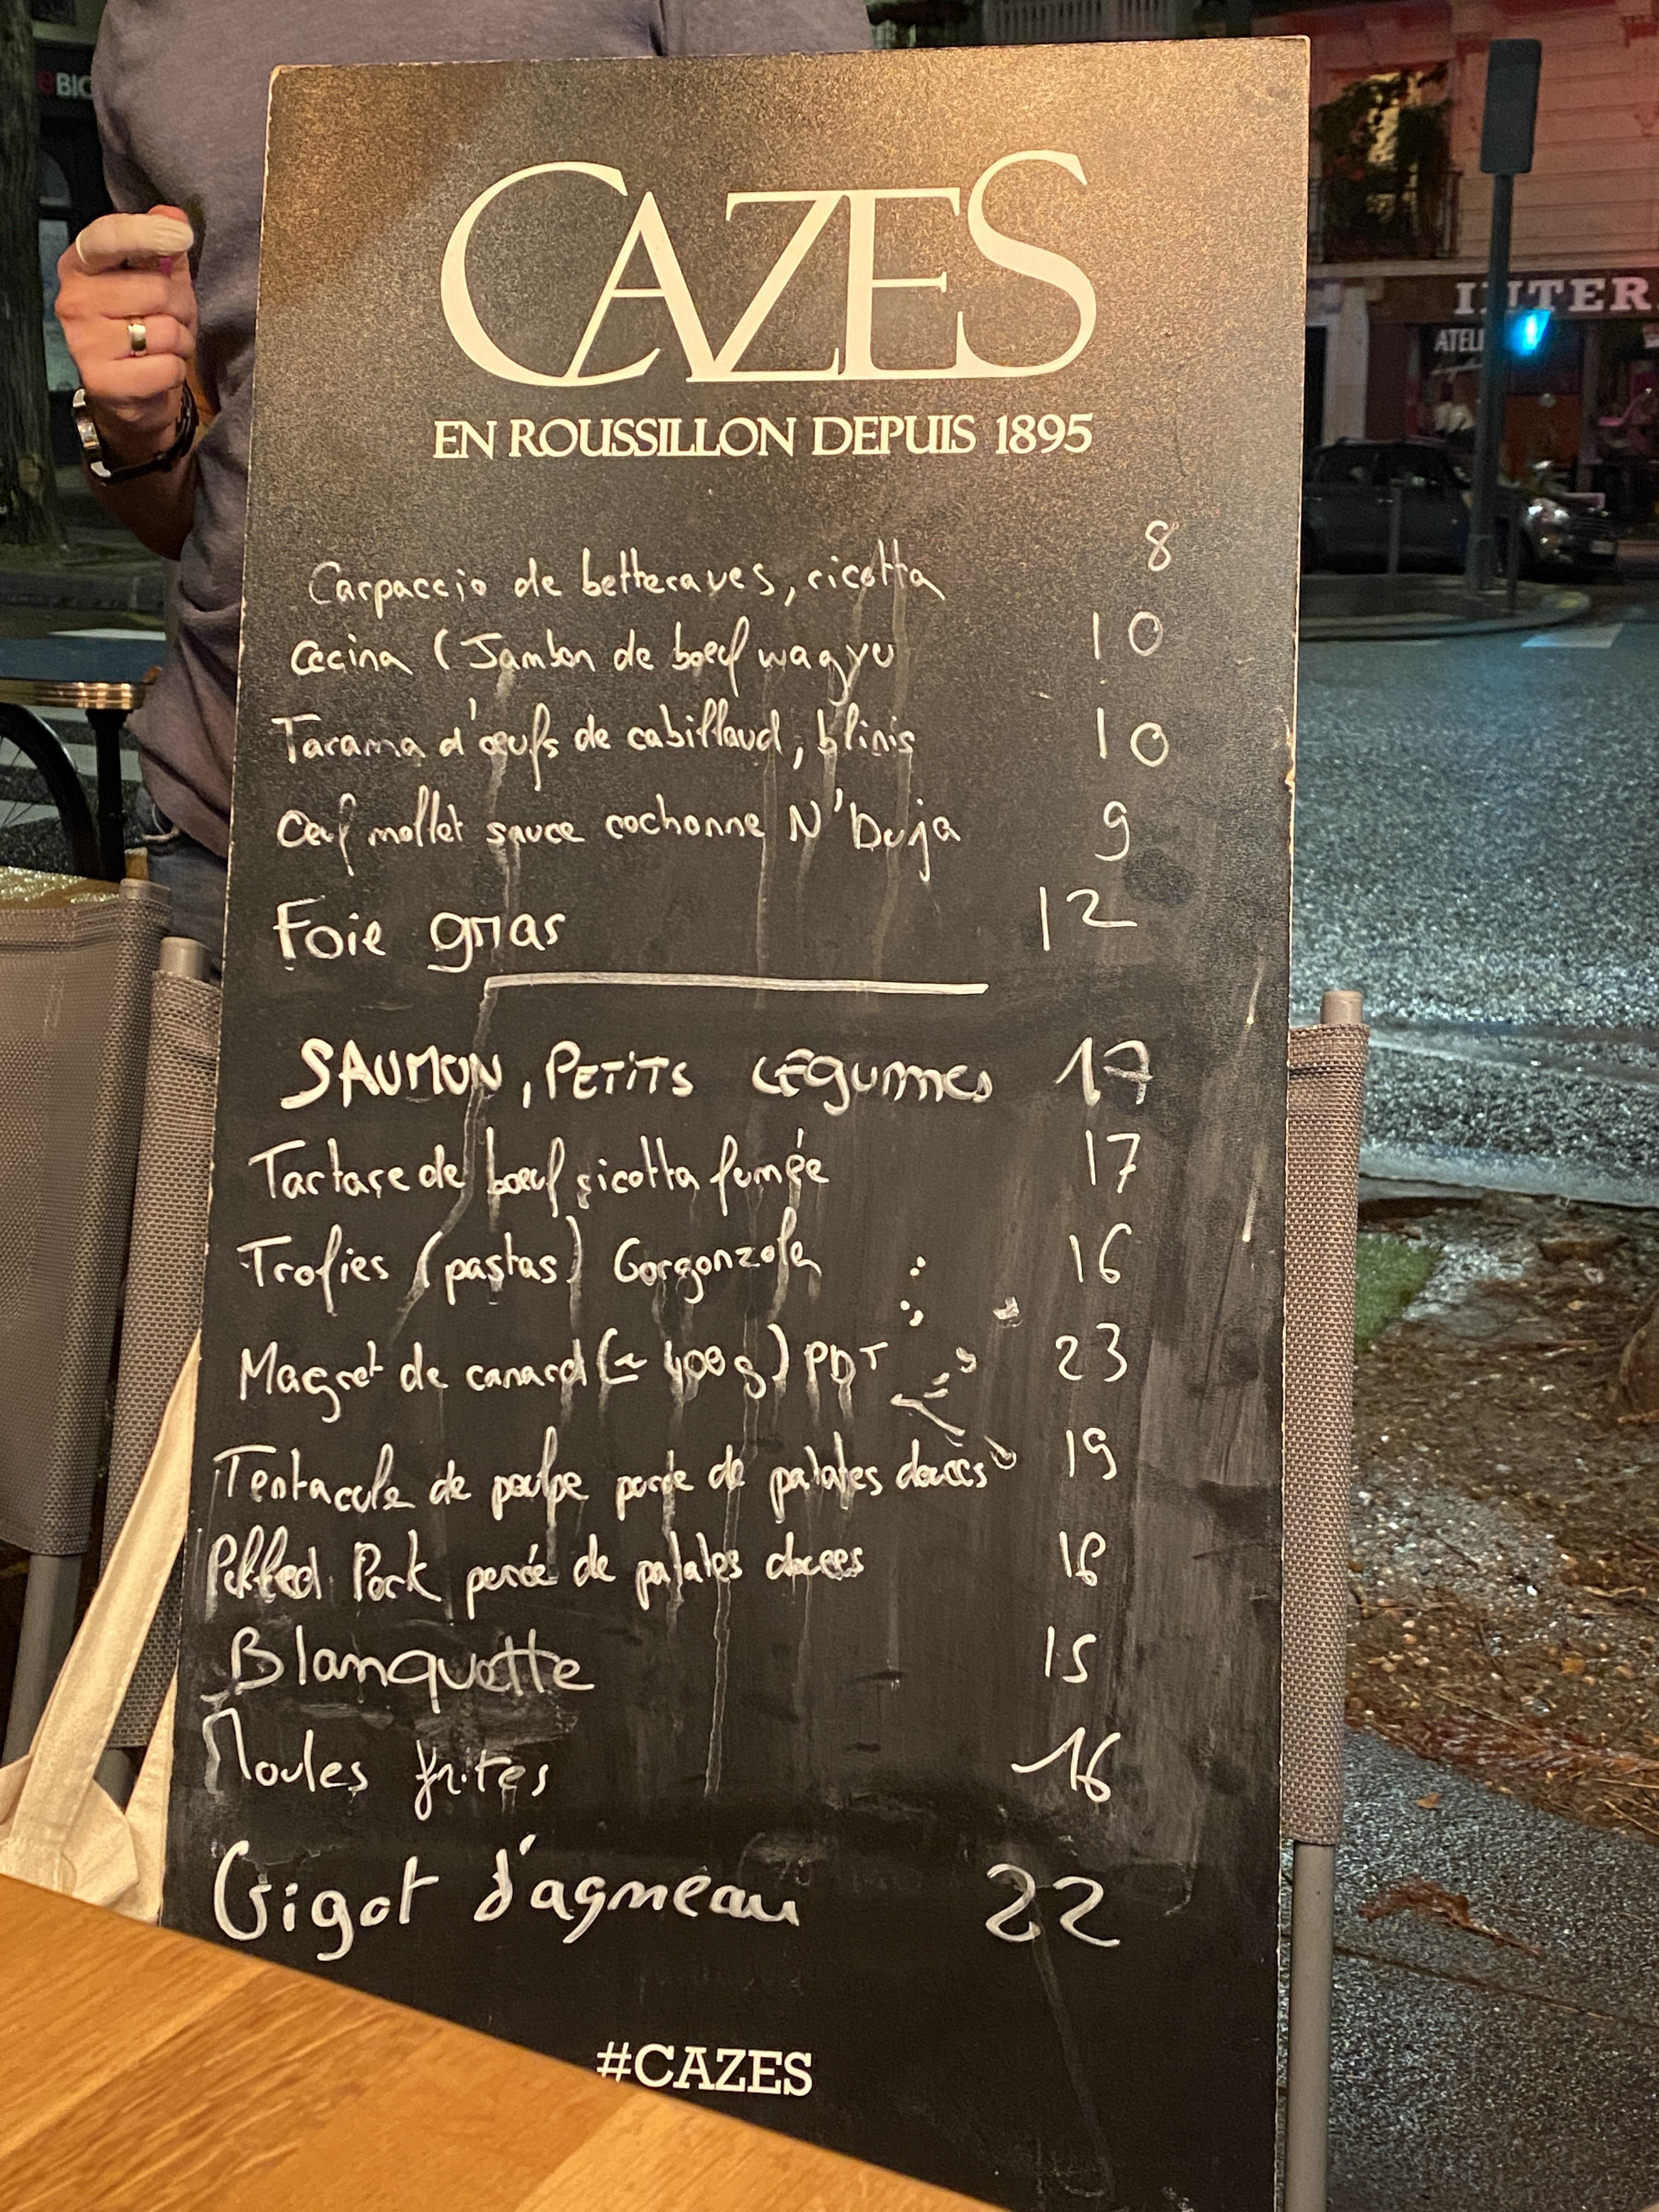 BIO
INTER
ATELI
CAZES
EN ROUSSILLON DEPUIS 1895
Carpaccio de betteraves, ricotta 8
Cecina (Jambon de boeuf wagyu 10
Tarama d'œufs de cabillaud, blinis 10
Oeuf mollet sauce cochonne N'Duja 9
Foie gras 12
SAUMON, PETITS LÉGUMES 17
Tartare de boeuf ricotta fumée 17
Trofies (pastas) Gorgonzola 16
Magret de canard (~ 400 g) PDT 23
Tentacule de poulpe purée de patates douces 19
Pulled Pork purée de patates douces 18
Blanquette 15
Moules frites 16
Gigot d'agneau 22
#CAZES